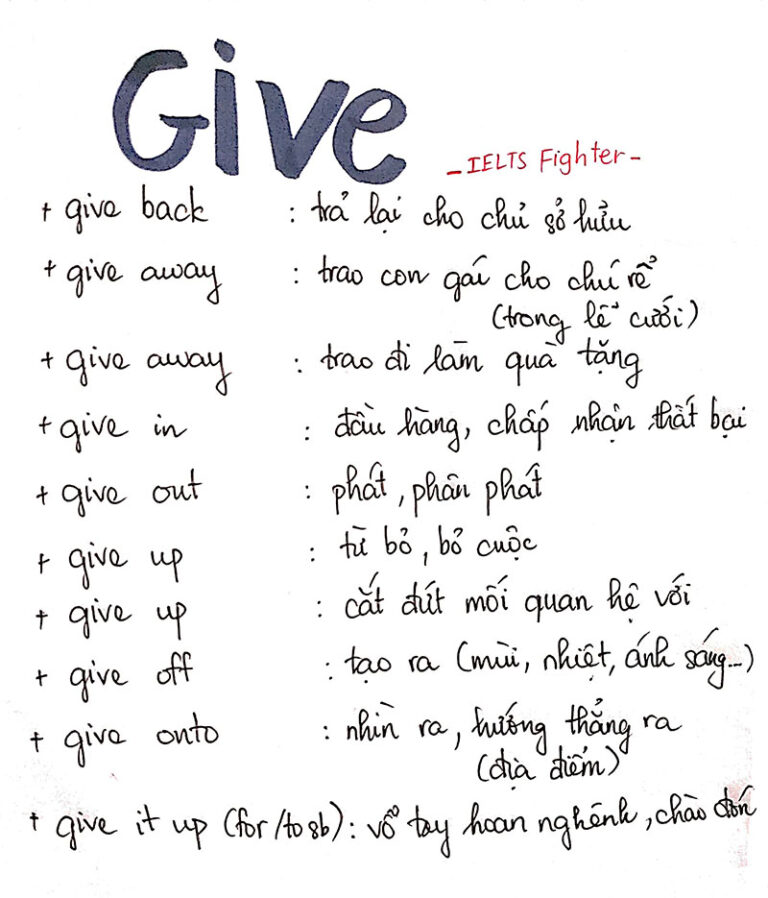 Give
- IELTS Fighter -
+ give back : trả lại cho chủ sở hữu
+ give away : trao con gái cho chú rể
(trong lễ cưới)
+ give away : trao đi làm quà tặng
+ give in : đầu hàng, chấp nhận thất bại
+ give out : phát, phân phát
+ give up : từ bỏ, bỏ cuộc
+ give up : cắt đứt mối quan hệ với
+ give off : tạo ra (mùi, nhiệt, ánh sáng...)
+ give onto : nhìn ra, hướng thẳng ra
(địa điểm)
+ give it up (for/to sb) : vỗ tay hoan nghênh, chào đón